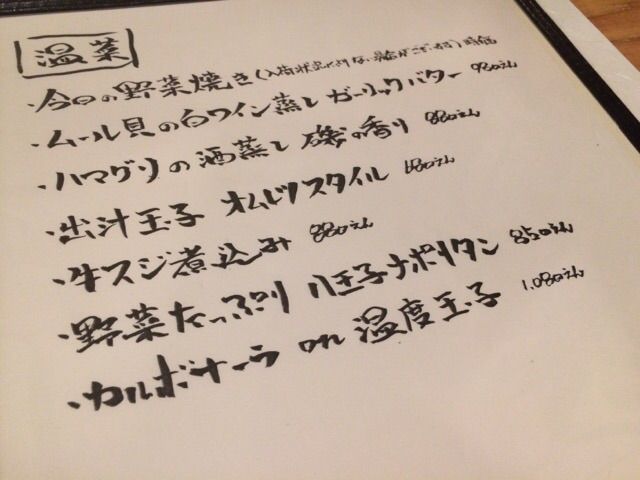 温菜
・今日の野菜焼き(入荷状況により無い場合がございます)時価
・ムール貝の白ワイン蒸し ガーリックバター 980えん
・ハマグリの酒蒸し 磯の香り 880えん
・出汁玉子 オムレツスタイル 680えん
・牛スジ煮込み 880えん
・野菜たっぷり 八王子ナポリタン 850えん
・カルボナーラ on 温度玉子 1,080えん